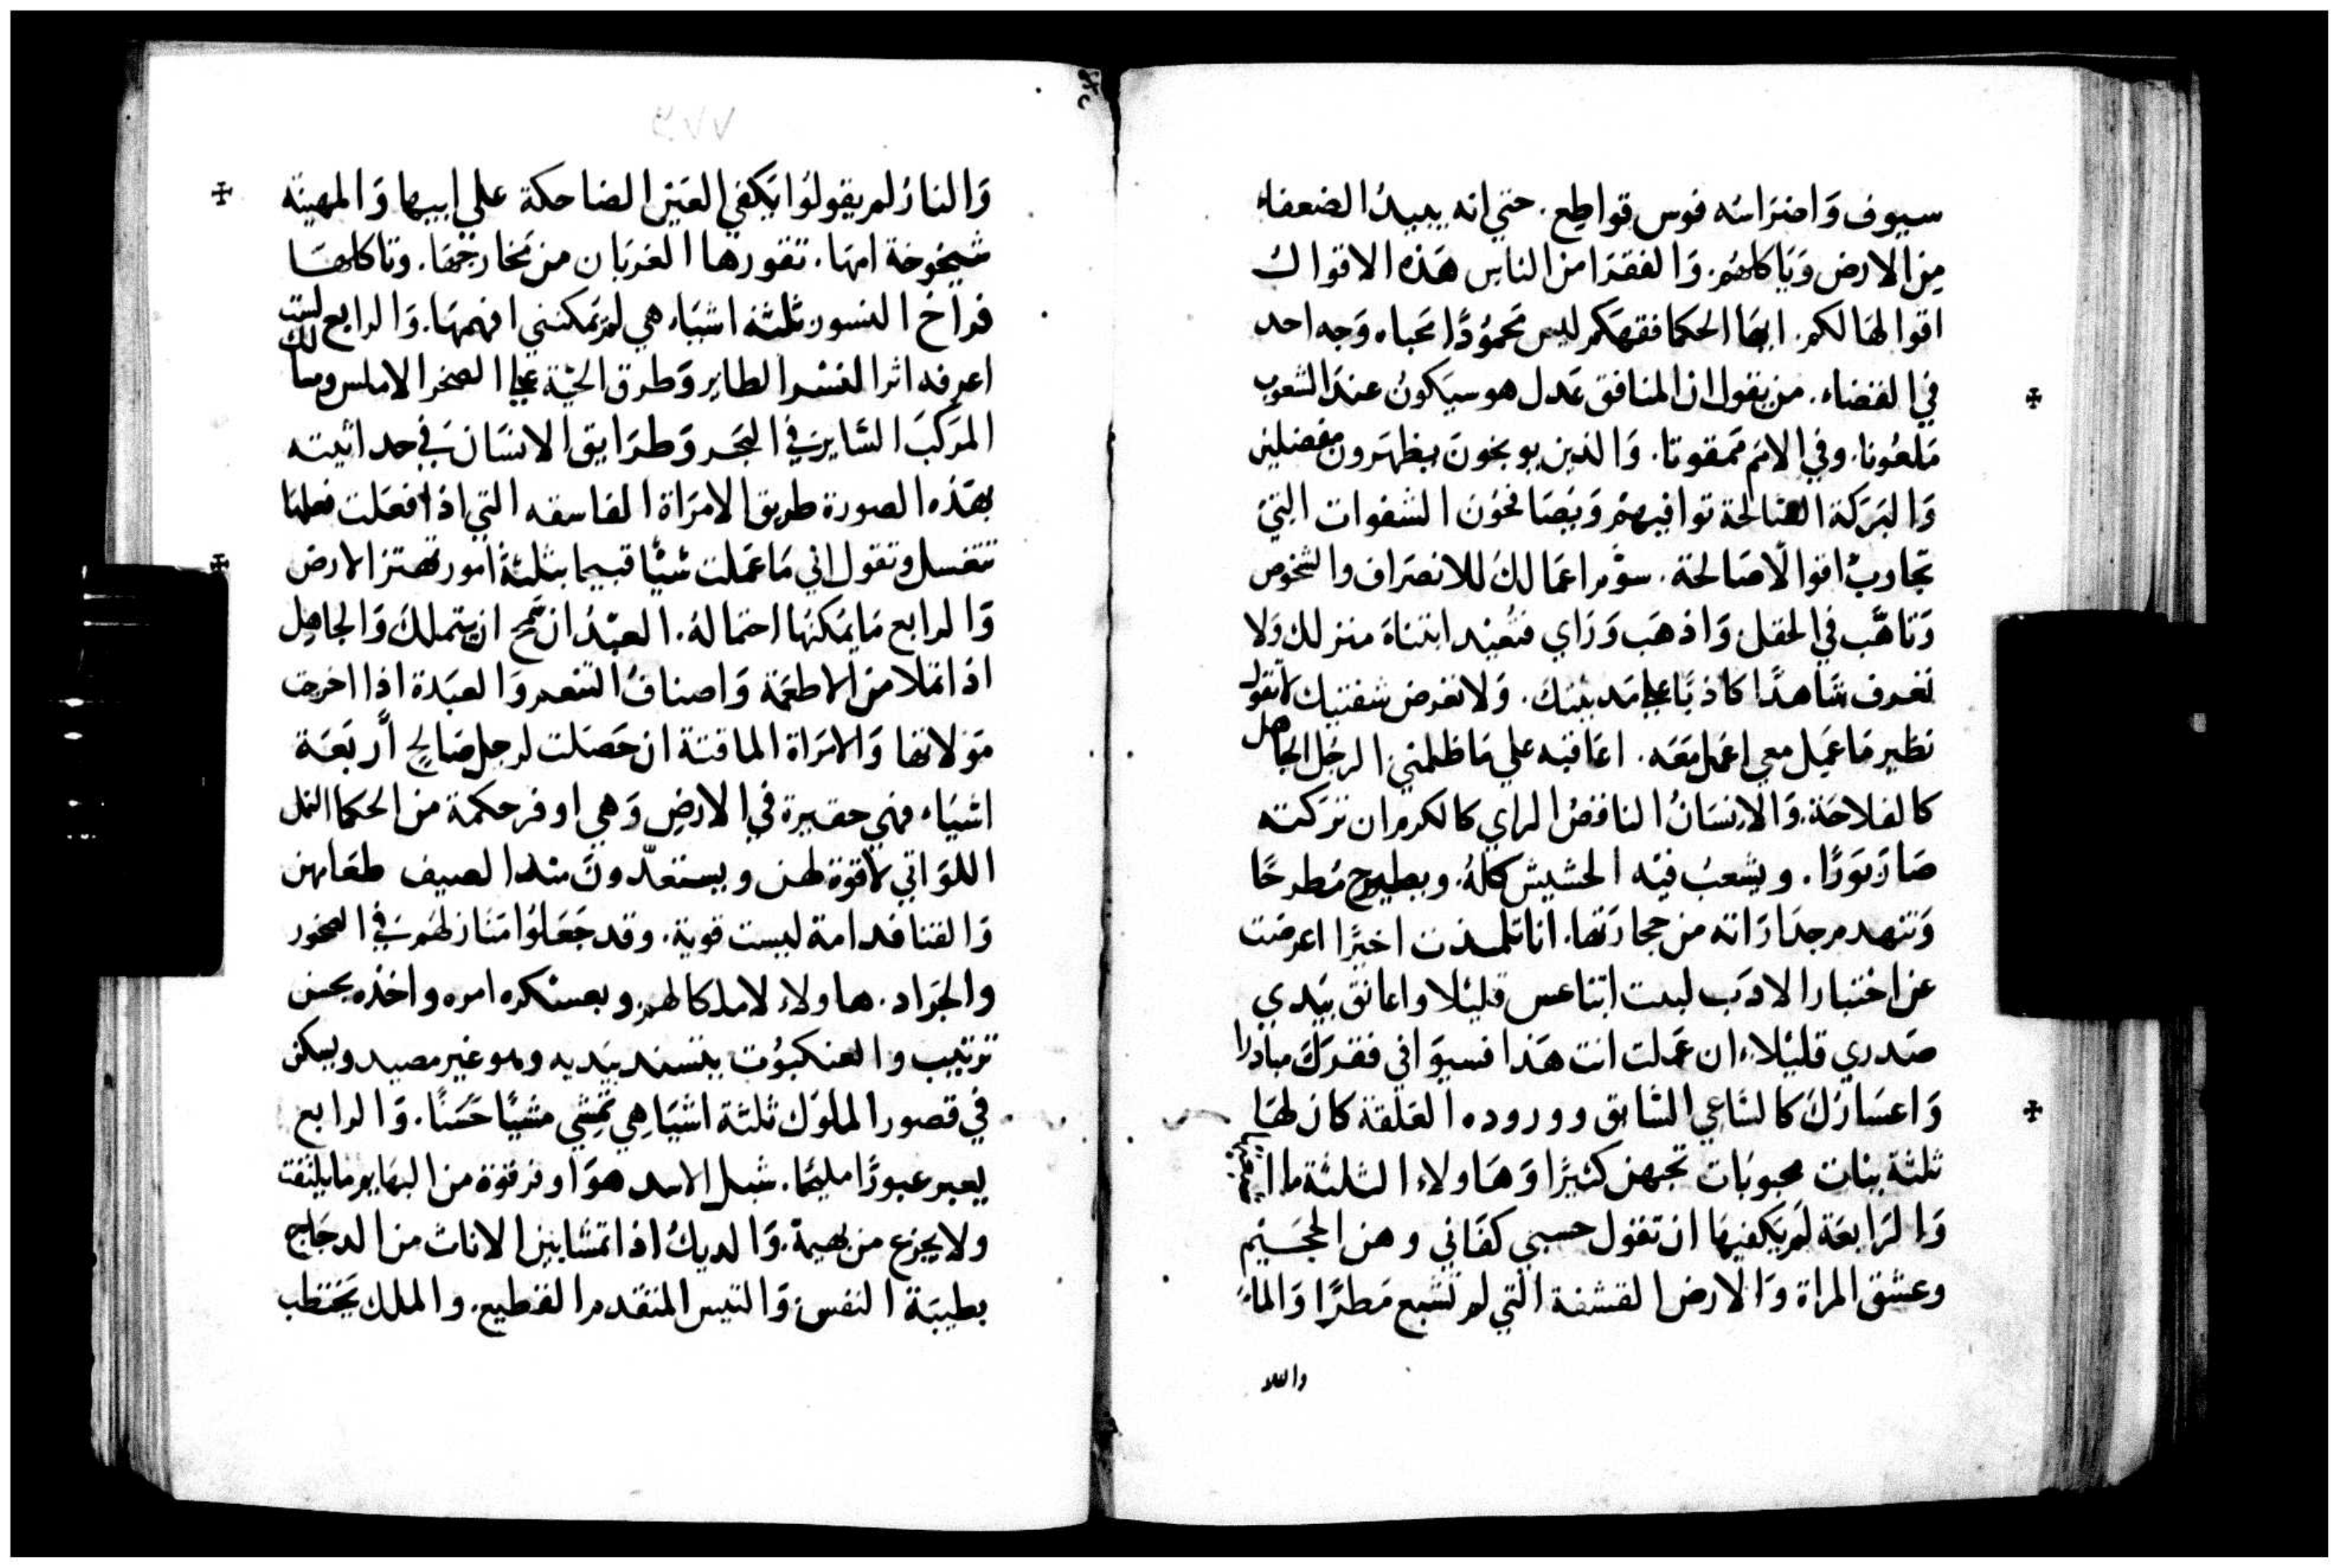 سيوف وَاضرَاسُه فوس قواطع. حتي انه يبيدُ الضعفاء
مِن الارض وَيَاكلهُم. وَالفقرَا من الناس هَذه الاقوالُ
اقوالهَا لكم. ايهَا الحكما فقهَكم ليس مَحموُدًا مَحباه وَجه احد
في القضاء. من يقول ان المنافق عَدل هو سيَكونُ عندَ الشعوب
مَلعُونا. وفي الامَم مَمقوتا. وَالذين يوبخون يظهَرون مفضلين
وَالبَرَكة الصَالحة توافيهمُ وَيُصَافحُون الشفوات التيِ
تجاوبُ اقوالًا صَالحة. سوُم اعمَالكَ للانصرَاف والشخوص
وَتاهَّب في الحقل وَاذهَب وَرَاي فتُعيْد ابتناهَ منزلك وَلا
تعرف شَاهدًا كاذبًا علي مَدينتكَ. وَلا تعرض شفتيك لا تقول
نظير مَا عَمِل معي اعمَل مَعَه. اعَاقبه علي مَا ظلمني الرَجل الجاهل
كالفلاحَة. وَالانسَانُ الناقصُ الراي كالكرم ان تركته
صَارَ بَورًا. ويشعبُ فيْه الحشيش كلهُ. ويصيرُ مُطرحًا
وَتنهدم جدَارَاته من حجارَتها. انا تلمذت اخيرًا اعرضت
عن اختبار الادَب لبست اتناعس قليلًا واعانق بيَدي
صَدري قليلًا. ان عَملت انت هَذا فسيوَافي فقرَكَ مبادرًا
وَاعسَارُكَ كالسَاعي السَابق ووروده العَلقة كان لهَا
ثلثة بنات محبوبَات تحبهن كثيرًا وَهَاولاء الثلثة ما اشبعنها
وَالرَابعَة لَم يَكفيهَا ان تقول حسبي كفَاني وهن الجحَيْم
وعشق المراة وَالارض القشفة التي لم تشبع مَطرًا وَالماءُ
والنار
٢٧٧
وَالنارُ لم يقولوُا يَكفي العَيْن الضاحكة علي ابيها وَالمهينَه
شيْخوخة امهَا. تقورهَا الغربَان من مَخارجهَا. وتاكلهَا
فراخ النسور ثلثة اشيَاء هي لم يَمكنني افهمهَا. وَالرابع لست
اعرفه اثر النسْر الطاير وَطرق الحيْة علي الصخر الاملس ومسالك
المَركبَ السَايرَ في البحَر وَطرَايق الانسَان في حداثيته
بهَذه الصورة طريق الامرَاة الفاسقه التي اذا فعَلت فعلهَا
تتغسل وتقول اني مَا عَملت شيئًا قبيحا بثلثة امور تهتز الارض
وَالرابع مَا يمَكنهَا احتمَالهُ. العبْدُ ان سَمح ان يتملك وَالجاهل
اذا تملا من الاطعمَة وَاصنافُ التنعم وَالعبَدة اذا اخرجت
مَولاتها وَالامرَاة الماقتة ان حَصَلت لرجل صَالح أربَعَة
اشيَاء فهي حقيرة في الارض وَهي اوفر حكمة من الحكما النمل
اللوَاتي لا قوة لهن ويستعدّون منذ الصيف طعَامهن
وَالقنافد امة ليست قوية. وقد جَعَلوُا مَنَازلهُمَ في الصخور
والجرَاد. هاولاء لا ملك لهم. وبعسْكره امره واخذه بحسن
ترتيب والعنكبوُت يتسند بيَديه وهو غير مصيد ويسكن
في قصور الملوُك ثلثة اشيَا هِي تمشي مشيًا حَسَنًا. وَالرابع
يعبر عبورًا مليحًا. شبل الاسد هوَ اوفر قوة من البهَايم ما يلتفت
ولا يجزع من بهيمة. وَالديكُ اذا تمَشا بين الاناث من الدجَاج
بطيبَة النفس وَالتيس المتقدم القطيع. والملك يَختطب